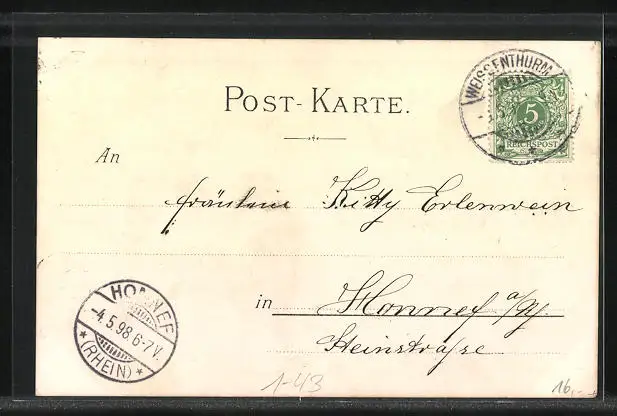 WEISSENTHURM
5
REICHSPOST
POST-KARTE.
An
Fräulein Kitty Erlenwein
in Honnef a/Rh.
Steinstraße
HONNEF
-4.5.98 6-7V.
*(RHEIN)*
1-43
16.-